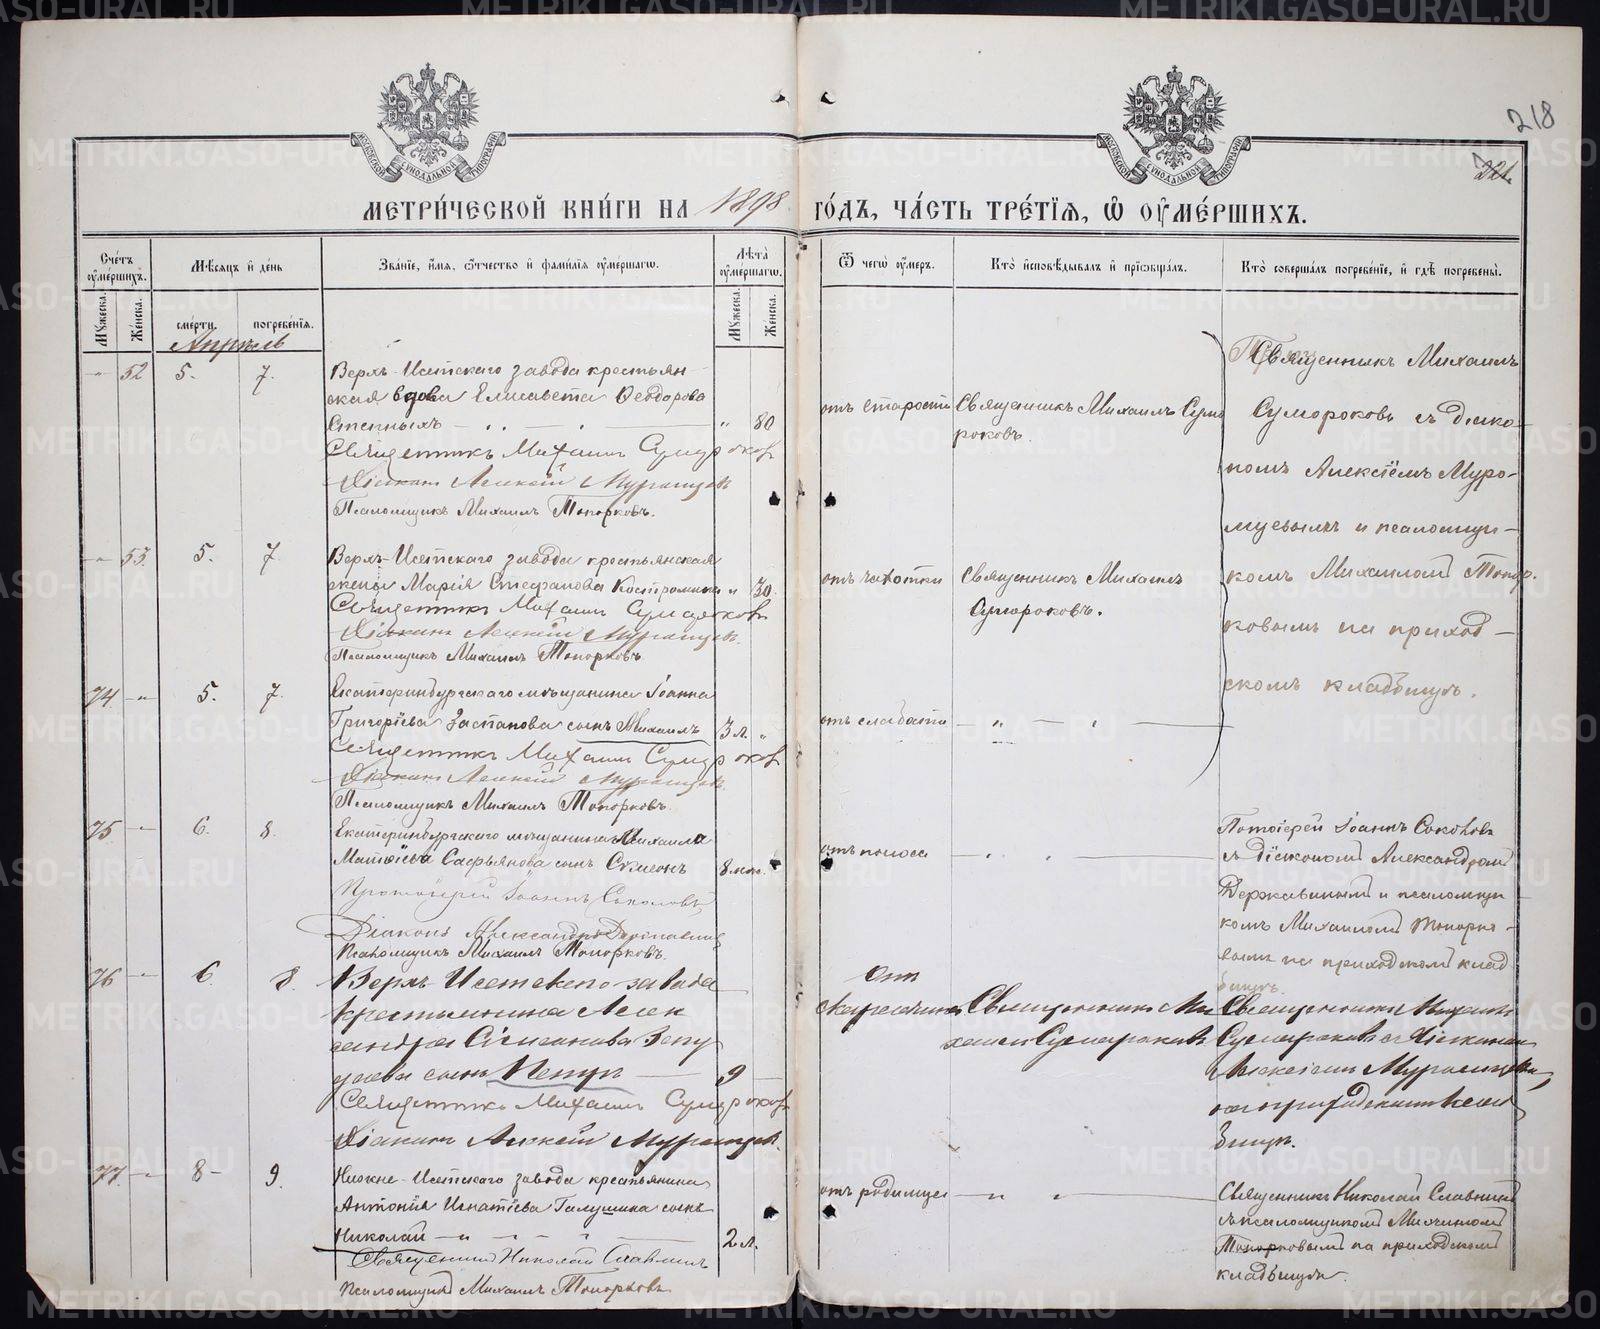 METRIKI.GASO-URAL.RU
218
221
МОСКОВСКОЙ СѴНОДАЛЬНОЙ ТИПОГРАФІИ
МОСКОВСКОЙ СѴНОДАЛЬНОЙ ТИПОГРАФІИ
МЕТРИ́ЧЕСКОЙ КНИ́ГИ НА 1898 ГО́ДЪ, ЧА́СТЬ ТРЕ́ТІѦ, Ѡ ОУ҆МЕ́РШИХЪ.
Сче́тъ оу҆ме́ршихъ.
Мѣ́сѧцъ и҆ де́нь
Зва́нїе, и҆́мѧ, ѻ҆́тчество и҆ фами́лїѧ оу҆ме́ршагѡ.
Лѣ́та оу҆ме́ршагѡ.
Ѿ чегѡ̀ оу҆́меръ.
Кто̀ и҆сповѣ́дывалъ и҆ прїѡбща́лъ.
Кто̀ соверша́лъ погребе́нїе, и҆ гдѣ̀ погребены̀.
Мꙋ́жеска.
Же́нска.
сме́рти.
погребе́нїѧ.
Мꙋ́жеска.
Же́нска.
Апрѣль
" 52 5. 7.
Верхъ-Исетскаго завода крестьян-
ская вдова Елисавета Ѳеодорова
Степныхъ " 80
Священникъ Михаилъ Сумороков
Діаконъ Алексій Муромцев
Псаломщикъ Михаилъ Топорковъ.
отъ старости
Священникъ Михаилъ Сумо
роковъ.
Священникъ Михаилъ
Сумороковъ съ діако-
номъ Алексіемъ Муро-
мцевымъ и псаломщи-
комъ Михаиломъ Топор-
ковымъ на приход-
скомъ кладбищѣ.
" 53. 5. 7.
Верхъ-Исетскаго завода крестьянская
жена Марія Стефанова Костромина " 30.
Священникъ Михаилъ Сумороков
Діаконъ Алексій Муромцев.
Псаломщикъ Михаилъ Топорковъ.
отъ чахотки
Священникъ Михаилъ
Сумороковъ.
74. " 5. 7.
Екатеринбургскаго мѣщанина Іоанна
Григоріева Застанова сынъ Михаилъ 3 л. "
Священникъ Михаилъ Сумороков
Діаконъ Алексій Муромцев.
Псаломщикъ Михаилъ Топорковъ.
отъ слабости
75 6. 8.
Екатеринбургскаго мѣщанина Михаила
Матѳіева Сафьянова сынъ Сѵмеонъ 8 мѣс.
Протоіерей Іоаннъ Соколовъ
Діаконъ Александръ Державинъ
Псаломщикъ Михаилъ Топорковъ.
отъ поноса
Потоіерей Іоаннъ Соколовъ
съ діакономъ Александромъ
Державинымъ и псаломщи-
комъ Михаиломъ Топорко-
вымъ на приходскомъ клад
бищѣ.
76 6. 8.
Верхъ-Исетскаго завода
крестьянина Алек
сандра Сімеонова
сынъ Петръ 9
Священникъ Михаилъ Сумороков
Діаконъ Алексій Муромцев.
Отъ
скарлатины
Священникъ Ми
хаилъ Сумороковъ
Священникъ Михаилъ
Сумороковъ съ діакономъ
Алексіемъ Муромцевым,
на приходскомъ клад
бищѣ.
77. 8 9.
Нижне-Исетскаго завода крестьянина
Антонія Игнатіева Галушина сынъ
Николай 2 л.
Священникъ Николай Славнинъ
Псаломщикъ Михаилъ Топорковъ
отъ родимца
Священникъ Николай Славнинъ
съ псаломщикомъ Михаиломъ
Топорковымъ на приходскомъ
кладбищѣ.